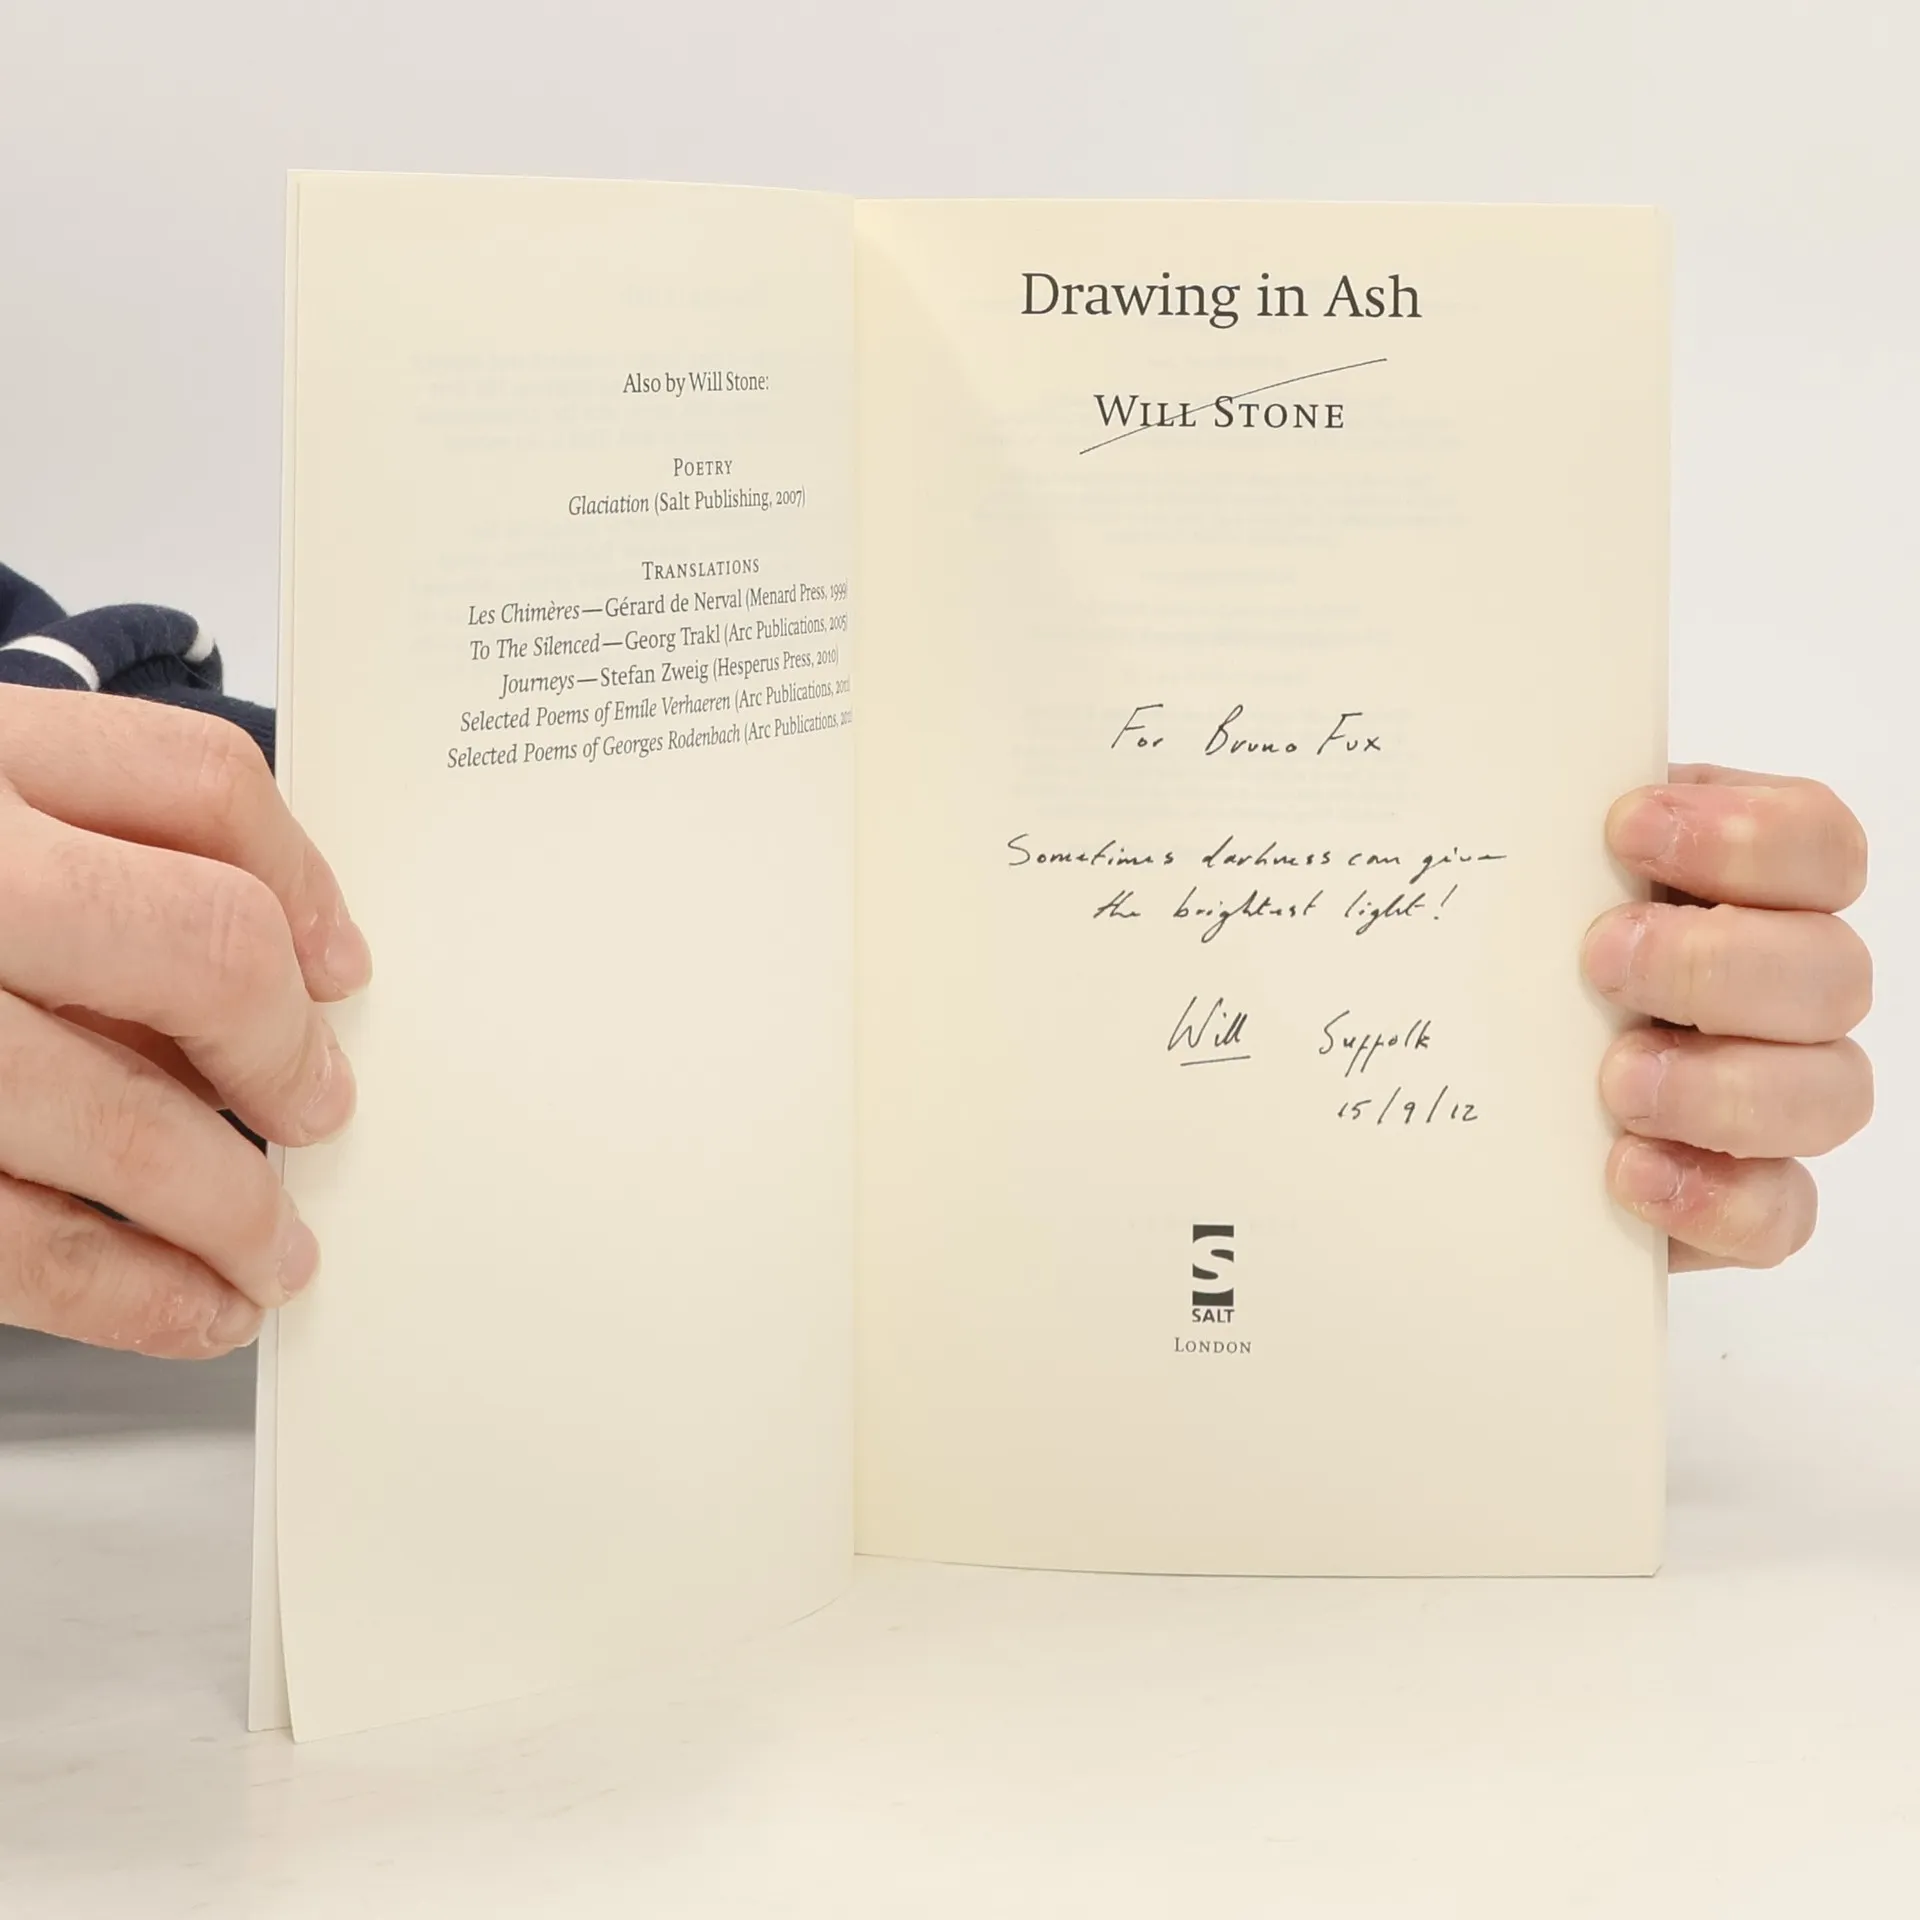 Also by Will Stone:
POETRY
Glaciation (Salt Publishing, 2007)
TRANSLATIONS
Les Chimères—Gérard de Nerval (Menard Press, 1999)
To The Silenced—Georg Trakl (Arc Publications, 2005)
Journeys—Stefan Zweig (Hesperus Press, 2010)
Selected Poems of Emile Verhaeren (Arc Publications,
Selected Poems of Georges Rodenbach (Arc Publications,
Drawing in Ash
WILL STONE
For Bruno Fux
Sometimes darkness can give
the brightest light!
Will Suffolk
15/9/12
SALT
LONDON